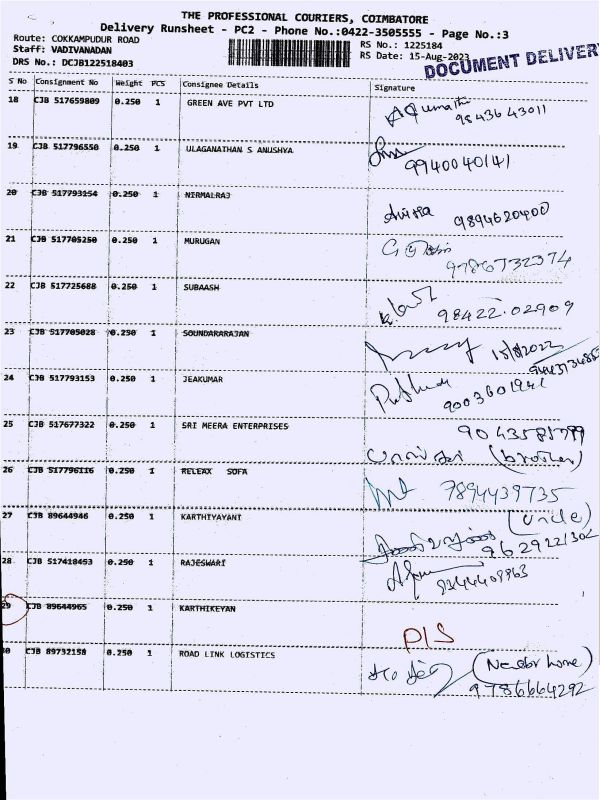 THE PROFESSIONAL COURIERS, COIMBATORE
Delivery Runsheet - PC2 - Phone No.:0422-3505555 - Page No.:3
Route: COKKAMPUDUR ROAD RS No.: 1225184
Staff: VADIVANADAN RS Date: 15-Aug-2023
DRS No.: DCJB122518403 DOCUMENT DELIVER
S No Consignment No Weight PCS Consignee Details Signature
18 CJB 517659809 0.250 1 GREEN AVE PVT LTD 9843643011
19 CJB 517796550 0.250 1 ULAGANATHAN S ANUSHYA 9940040141
20 CJB 517793154 0.250 1 NIRMALRAJ 9894620400
21 CJB 517705250 0.250 1 MURUGAN 9786732374
22 CJB 517725688 0.250 1 SUBAASH 98422.02909
23 CJB 517705028 0.250 1 SOUNDARARAJAN
24 CJB 517793153 0.250 1 JEAKUMAR 9003601941
25 CJB 517677322 0.250 1 SRI MEERA ENTERPRISES
(brother)
26 CJB 517796116 0.250 1 RELEAX SOFA 7894439735
27 CJB 89644946 0.250 1 KARTHIYAYANI (uncle)
28 CJB 517418453 0.250 1 RAJESWARI
29 CJB 89644965 0.250 1 KARTHIKEYAN
0 CJB 89732158 0.250 1 ROAD LINK LOGISTICS
9786664292